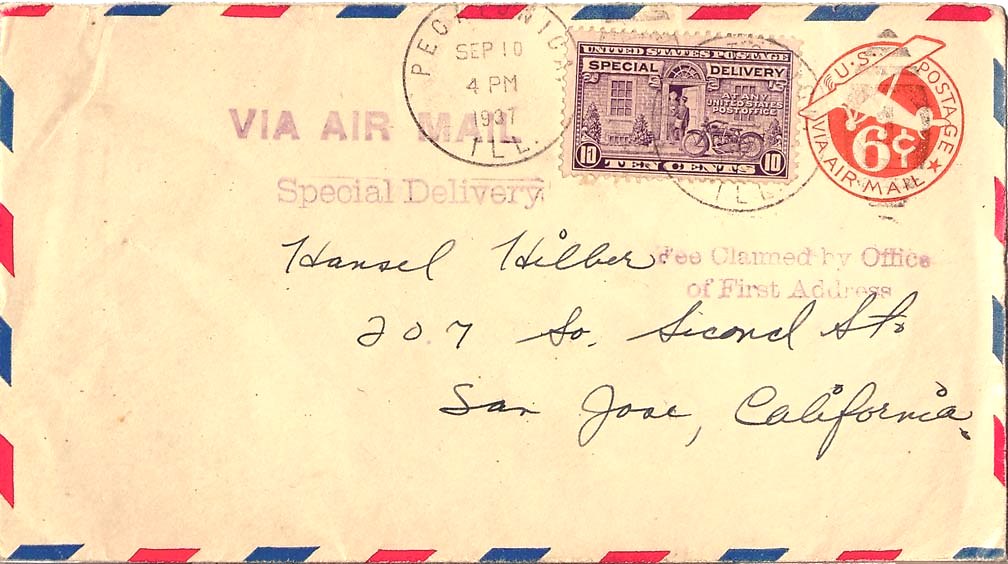 PECATONICA
SEP 10
4 PM
1937
ILL.
UNITED STATES POSTAGE
SPECIAL DELIVERY
AT ANY
UNITED STATES
POST OFFICE
10 TEN CENTS 10
ILL.
U.S. POSTAGE
6¢
VIA AIR MAIL
VIA AIR MAIL
Special Delivery
Fee Claimed by Office
of First Address
Hansel Hilber
207 So. Second St.
San Jose, California.